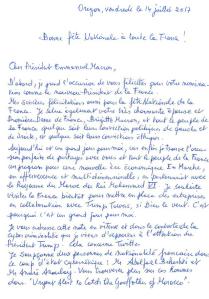 Oregon, vendredi le 14 juillet 2017
Bonne fête Nationale à toute la France !
Cher Président Emmanuel Macron,
D'abord, je prends l'occasion de vous féliciter pour votre nomination
comme le nouveau Président de la France.
Mes sincères félicitations aussi pour la fête Nationale de la
France. Je salue également votre très charmante épouse et
Première Dame de France, Brigitte Macron, et tout le peuple de
la France quelque soit leur conviction politique de gauche et
de droite, et quelque soit leur conviction éthnique.
Aujourd'hui est un grand jour pour moi, car enfin je trouve l'occasion
propice de partager avec vous et tout le peuple de la France,
un programme pour une nouvelle ère économique En Marche
en effervescence et multi-dimensionnelle; en partenariat avec
le Royaume du Maroc du Roi Mohammed VI. Je souhaite
visiter la France bientôt pour mettre en place une entreprise
en collaboration avec Trump Tower, si Dieu le veut. C'est
pourquoi c'est un grand jour pour moi.
Je vous adresse cette note en intime et dans le contexte de la
cybercriminalité que je viens d'exposer à l'attention du
Président Trump. Cela concerne Twitter.
Je soupçonne deux personnes de nationalité française dans
ce coup d'état cybernétique : Mr.
et Mr André Azoulay. Vous trouverez plus sur ces hommes
dans "Urgent Alert to Catch the Godfathers of Morocco".